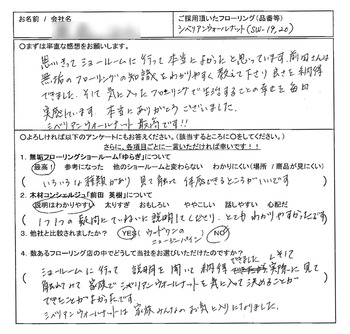 お名前 / 会社名
ご採用頂いたフローリング(品番等)
シベリアンウォールナット(SW-19,20)
○まずは率直な感想をお願いします。
思いきってショールームに行って本当によかったと思っています。前田さんは
無垢のフローリングの知識をわかりやすく教えて下さり良さを納得
できました。そして気に入ったフローリングで生活することの幸せを毎日
実感しています。本当にありがとうございました。
シベリアンウォールナット最高です!!
○よろしければ以下のアンケートにもお答えください。(該当するところに○をしてください。)
さらに、各項目ごとに一言いただければ幸いです!
1. 無垢フローリングショールーム「ゆらぎ」について
最高! 参考になった 他のショールームと変わらない わかりにくい(場所 / 商品が見にくい)
いろいろな種類があり 見て触って体感できるところがいいです
2. 木材コンシェルジュ「前田 英樹」について
説明はわかりやすい 太りすぎ おもしろい ややこしい 話しやすい 心配だ
1つ1つの疑問にていねいに説明してくださり、とてもわかりやすかったです
3. 他社と比較されましたか? YES ウッドワンの ショールーム NO
4. 数あるフローリング店の中でどうして当社をお選びいただけたのですか?
ショールームに行って 説明を聞いて納得できました。そして 実際に見て
触れて 家族でシベリアンウォールナットを気に入って決めることが
できたことがよかったです。
シベリアンウォールナットは 家族みんなのお気に入りになりました。